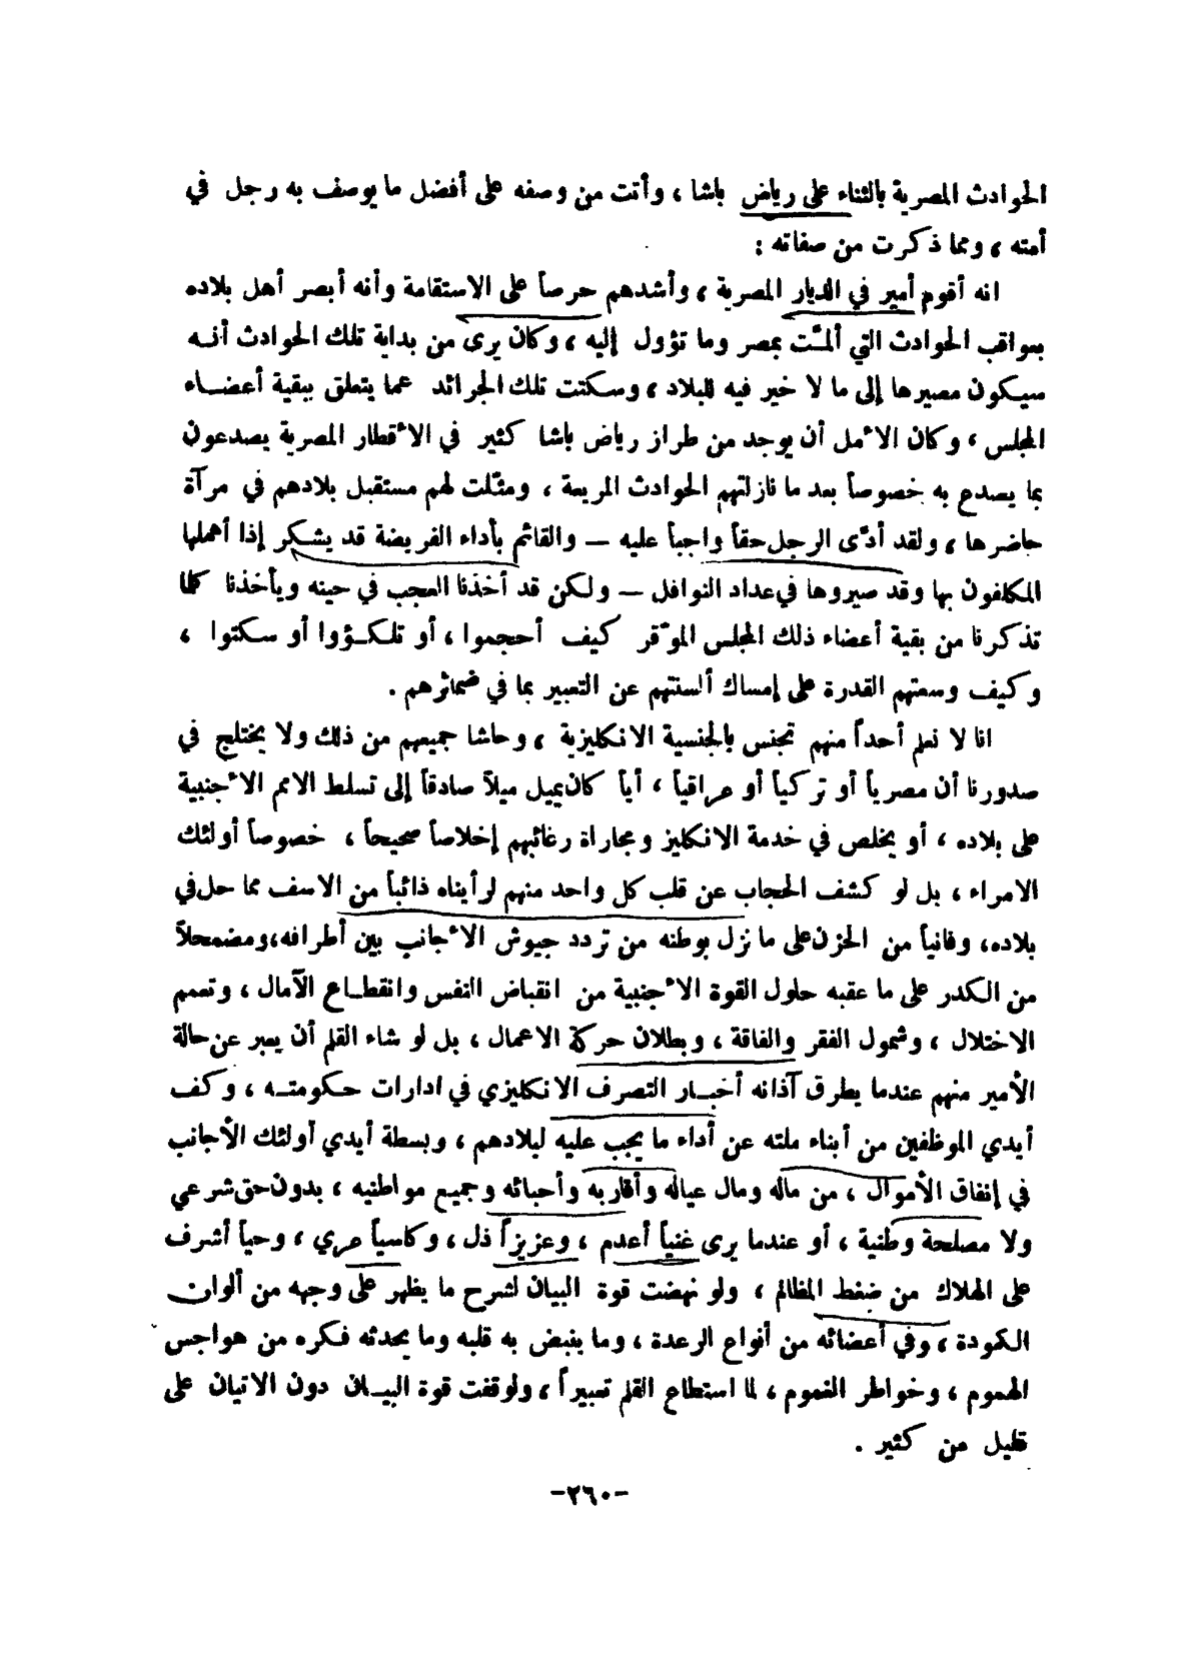 الحوادث المصرية بالثناء على رياض باشا ، وأتت من وصفه على أفضل ما يوصف به رجل في
أمته ، ومما ذكرت من صفاته :
انه أقوم أمير في الديار المصرية ، وأشدهم حرصاً على الاستقامة وأنه أبصر أهل بلاده
بعواقب الحوادث التي ألمّت بمصر وما تؤول إليه ، وكان يرى من بداية تلك الحوادث أنه
سيكون مصيرها إلى ما لا خير فيه للبلاد ، وسكتت تلك الجرائد عما يتعلق ببقية أعضاء
المجلس ، وكان الأمل أن يوجد من طراز رياض باشا كثير في الأقطار المصرية يصدعون
بما يصدع به خصوصاً بعد ما نازلتهم الحوادث المريعة ، ومثّلت لهم مستقبل بلادهم في مرآة
حاضرها ، ولقد أدّى الرجل حقاً واجباً عليه – والقائم بأداء الفريضة قد يشكر إذا أهملها
المكلفون بها وقد صيروها في عداد النوافل – ولكن قد أخذنا العجب في حينه ويأخذنا كلما
تذكرنا من بقية أعضاء ذلك المجلس الموّقر كيف أحجموا ، أو تلكؤوا أو سكتوا ،
وكيف وسعتهم القدرة على إمساك ألسنتهم عن التعبير بما في ضمائرهم .
انا لا نعلم أحداً منهم تجنس بالجنسية الانكليزية ، وحاشا جميعهم من ذلك ولا يختلج في
صدورنا أن مصرياً أو تركياً أو عراقياً ، أياً كان يميل ميلاً صادقاً إلى تسلط الامم الأجنبية
على بلاده ، أو يخلص في خدمة الانكليز ومجاراة رغائبهم إخلاصاً صحيحاً ، خصوصاً أولئك
الامراء ، بل لو كشف الحجاب عن قلب كل واحد منهم لرأيناه ذائباً من الاسف مما حل في
بلاده، وفانياً من الحزن على ما نزل بوطنه من تردد جيوش الأجانب بين أطرافه، ومضمحلاً
من الكدر على ما عقبه حلول القوة الأجنبية من انقباض النفس وانقطاع الآمال ، وتعمم
الاختلال ، وشمول الفقر والفاقة ، وبطلان حركة الاعمال ، بل لو شاء القلم أن يعبر عن حالة
الأمير منهم عندما يطرق آذانه أخبار التصرف الانكليزي في ادارات حكومته ، وكف
أيدي الموظفين من أبناء ملته عن أداء ما يجب عليه لبلادهم ، وبسطة أيدي أولئك الأجانب
في إنفاق الأموال ، من ماله ومال عياله وأقاربه وأحبائه وجميع مواطنيه ، بدون حق شرعي
ولا مصلحة وطنية ، أو عندما يرى غنياً أعدم ، وعزيزاً ذل ، وكاسياً عري ، وحياً أشرف
على الهلاك من ضغط المظالم ، ولو نهضت قوة البيان لشرح ما يظهر على وجهه من ألوان
الكمودة ، وفي أعضائه من أنواع الرعدة ، وما ينبض به قلبه وما يحدثه فكره من هواجس
الهموم ، وخواطر الغموم ، لما استطاع القلم تعبيراً ، ولوقفت قوة البيان دون الاتيان على
قليل من كثير .
-٢٦٠-